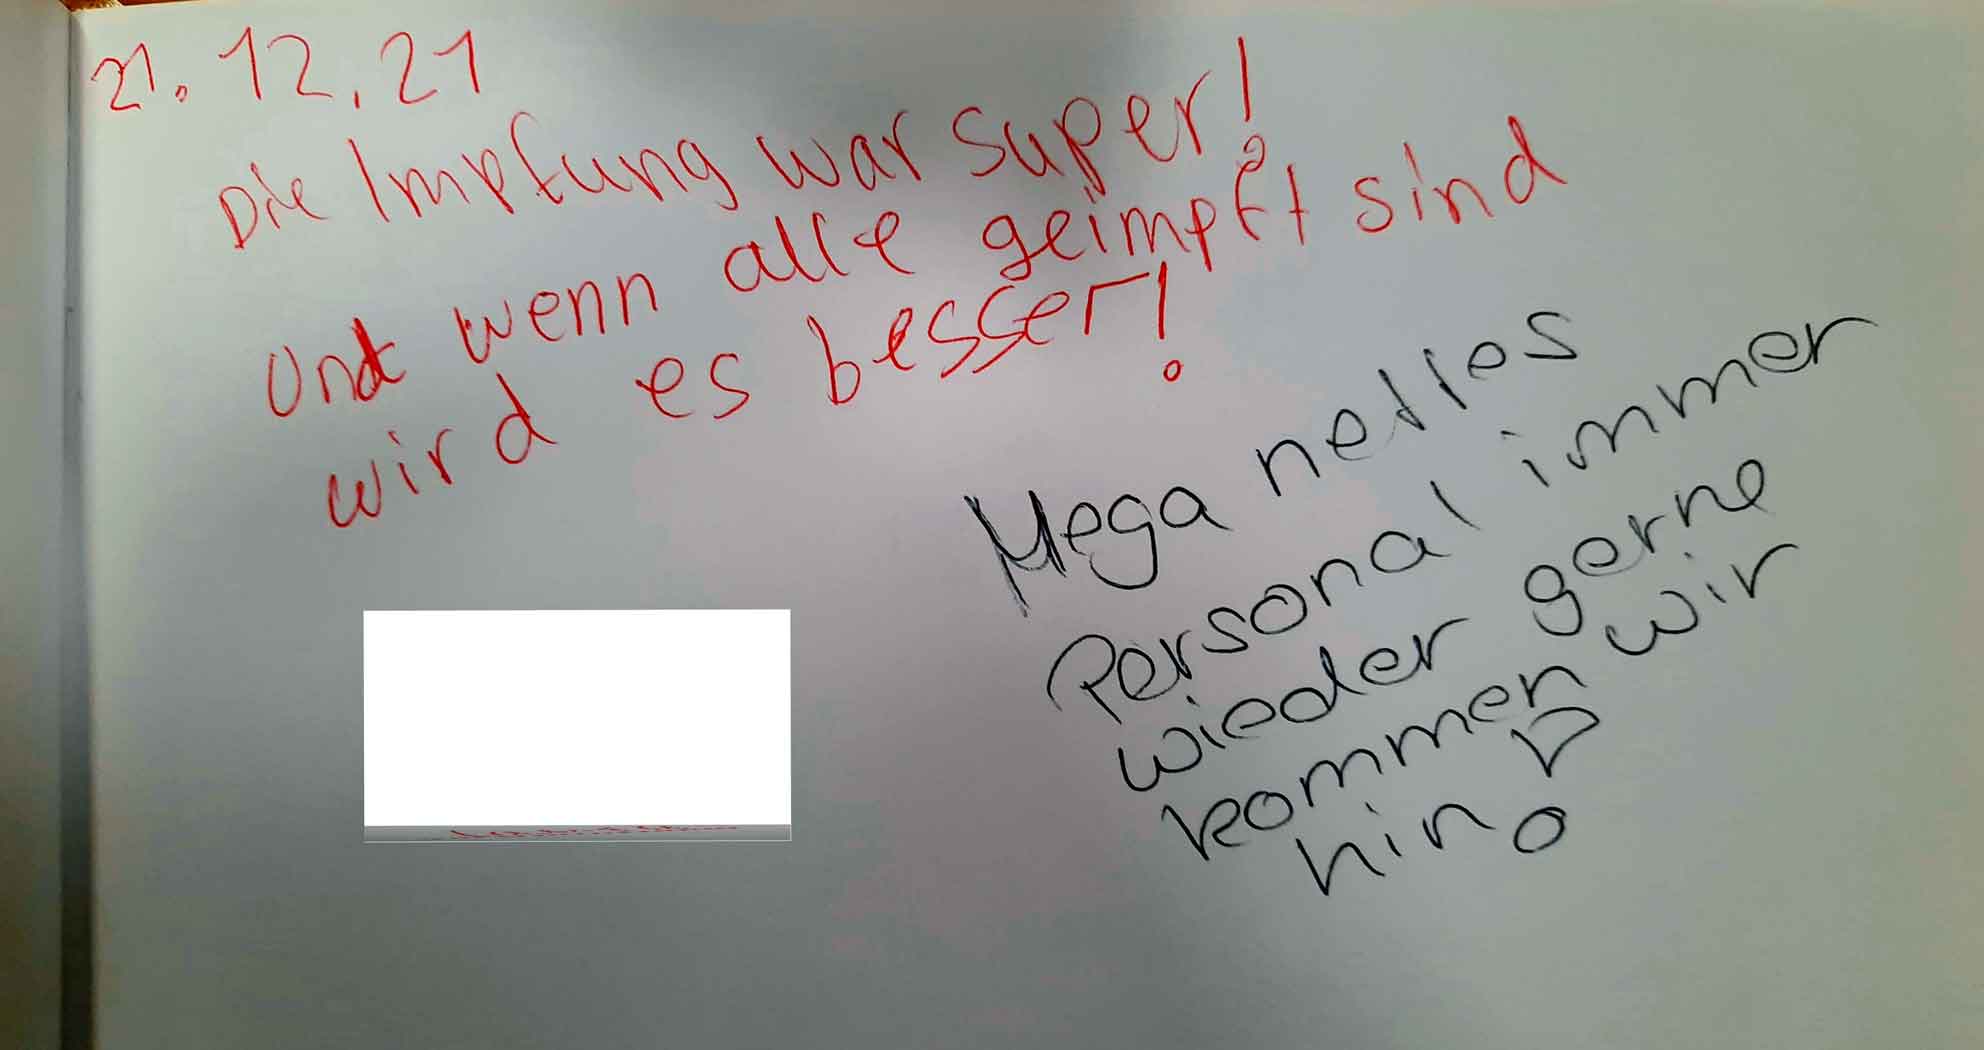 21.12.21
Die Impfung war super!
Und wenn alle geimpft sind
wird es besser!
Mega nettes
Personal immer
wieder gerne
kommen wir
hin